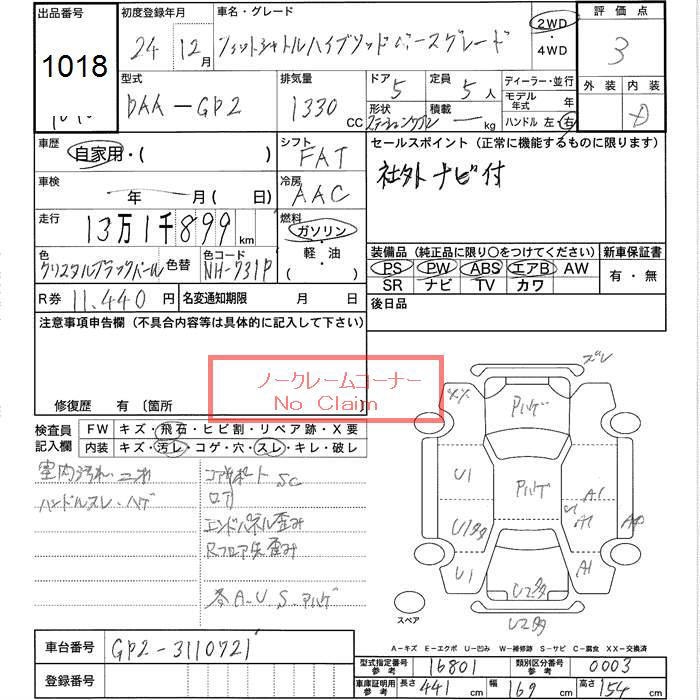 出品番号 初度登録年月 車名・グレード 評価点
1018 24 12月 フィットシャトルハイブリッド ベースグレード 2WD・4WD 3
型式 排気量 ドア 定員 ディーラー・並行 外装 内装
DAA-GP2 1330CC 5 5人 モデル年式 年 D
形状 ステーションワゴン 積載 ー kg ハンドル 左・右
車歴 自家用・( ) シフト FAT セールスポイント (正常に機能するものに限ります)
車検 ー 年 月( 日) 冷房 AAC 社外ナビ付
走行 13万1千899km 燃料 ガソリン・軽・油( )
色 クリスタルブラックパール 色替 色コード NH-731P
装備品 (純正品に限り○をつけてください) 新車保証書
PS PW ABS エアB AW 有・無
SR ナビ TV カワ
R券 11,440円 名変通知期限 月 日 後日品
注意事項申告欄 (不具合内容等は具体的に記入して下さい)
ノークレームコーナー
No Claim
修復歴 有 〔箇所
検査員記入欄 FW キズ・飛石・ヒビ割・リペア跡・X要
内装 キズ・汚レ・コゲ・穴・スレ・キレ・破レ
室内汚れ
ハンドルスレ・ハゲ
コアサポートSC
ロア
エンドパネル歪み
Rフロア先歪み
各A.U.S.ハゲ
ズレ
XX
Pハゲ
U1
Pハゲ
A1
U1
A1
U1
A1
U2多
U2多
スペア
A-キズ E-エクボ U-凹み W-補修跡 S-サビ C-腐食 XX-交換済
車台番号 GP2-3110721
登録番号
型式指定番号 参考 16801 類別区分番号 参考 0003
車庫証明用 参考 長さ 441cm 幅 169cm 高さ 154cm